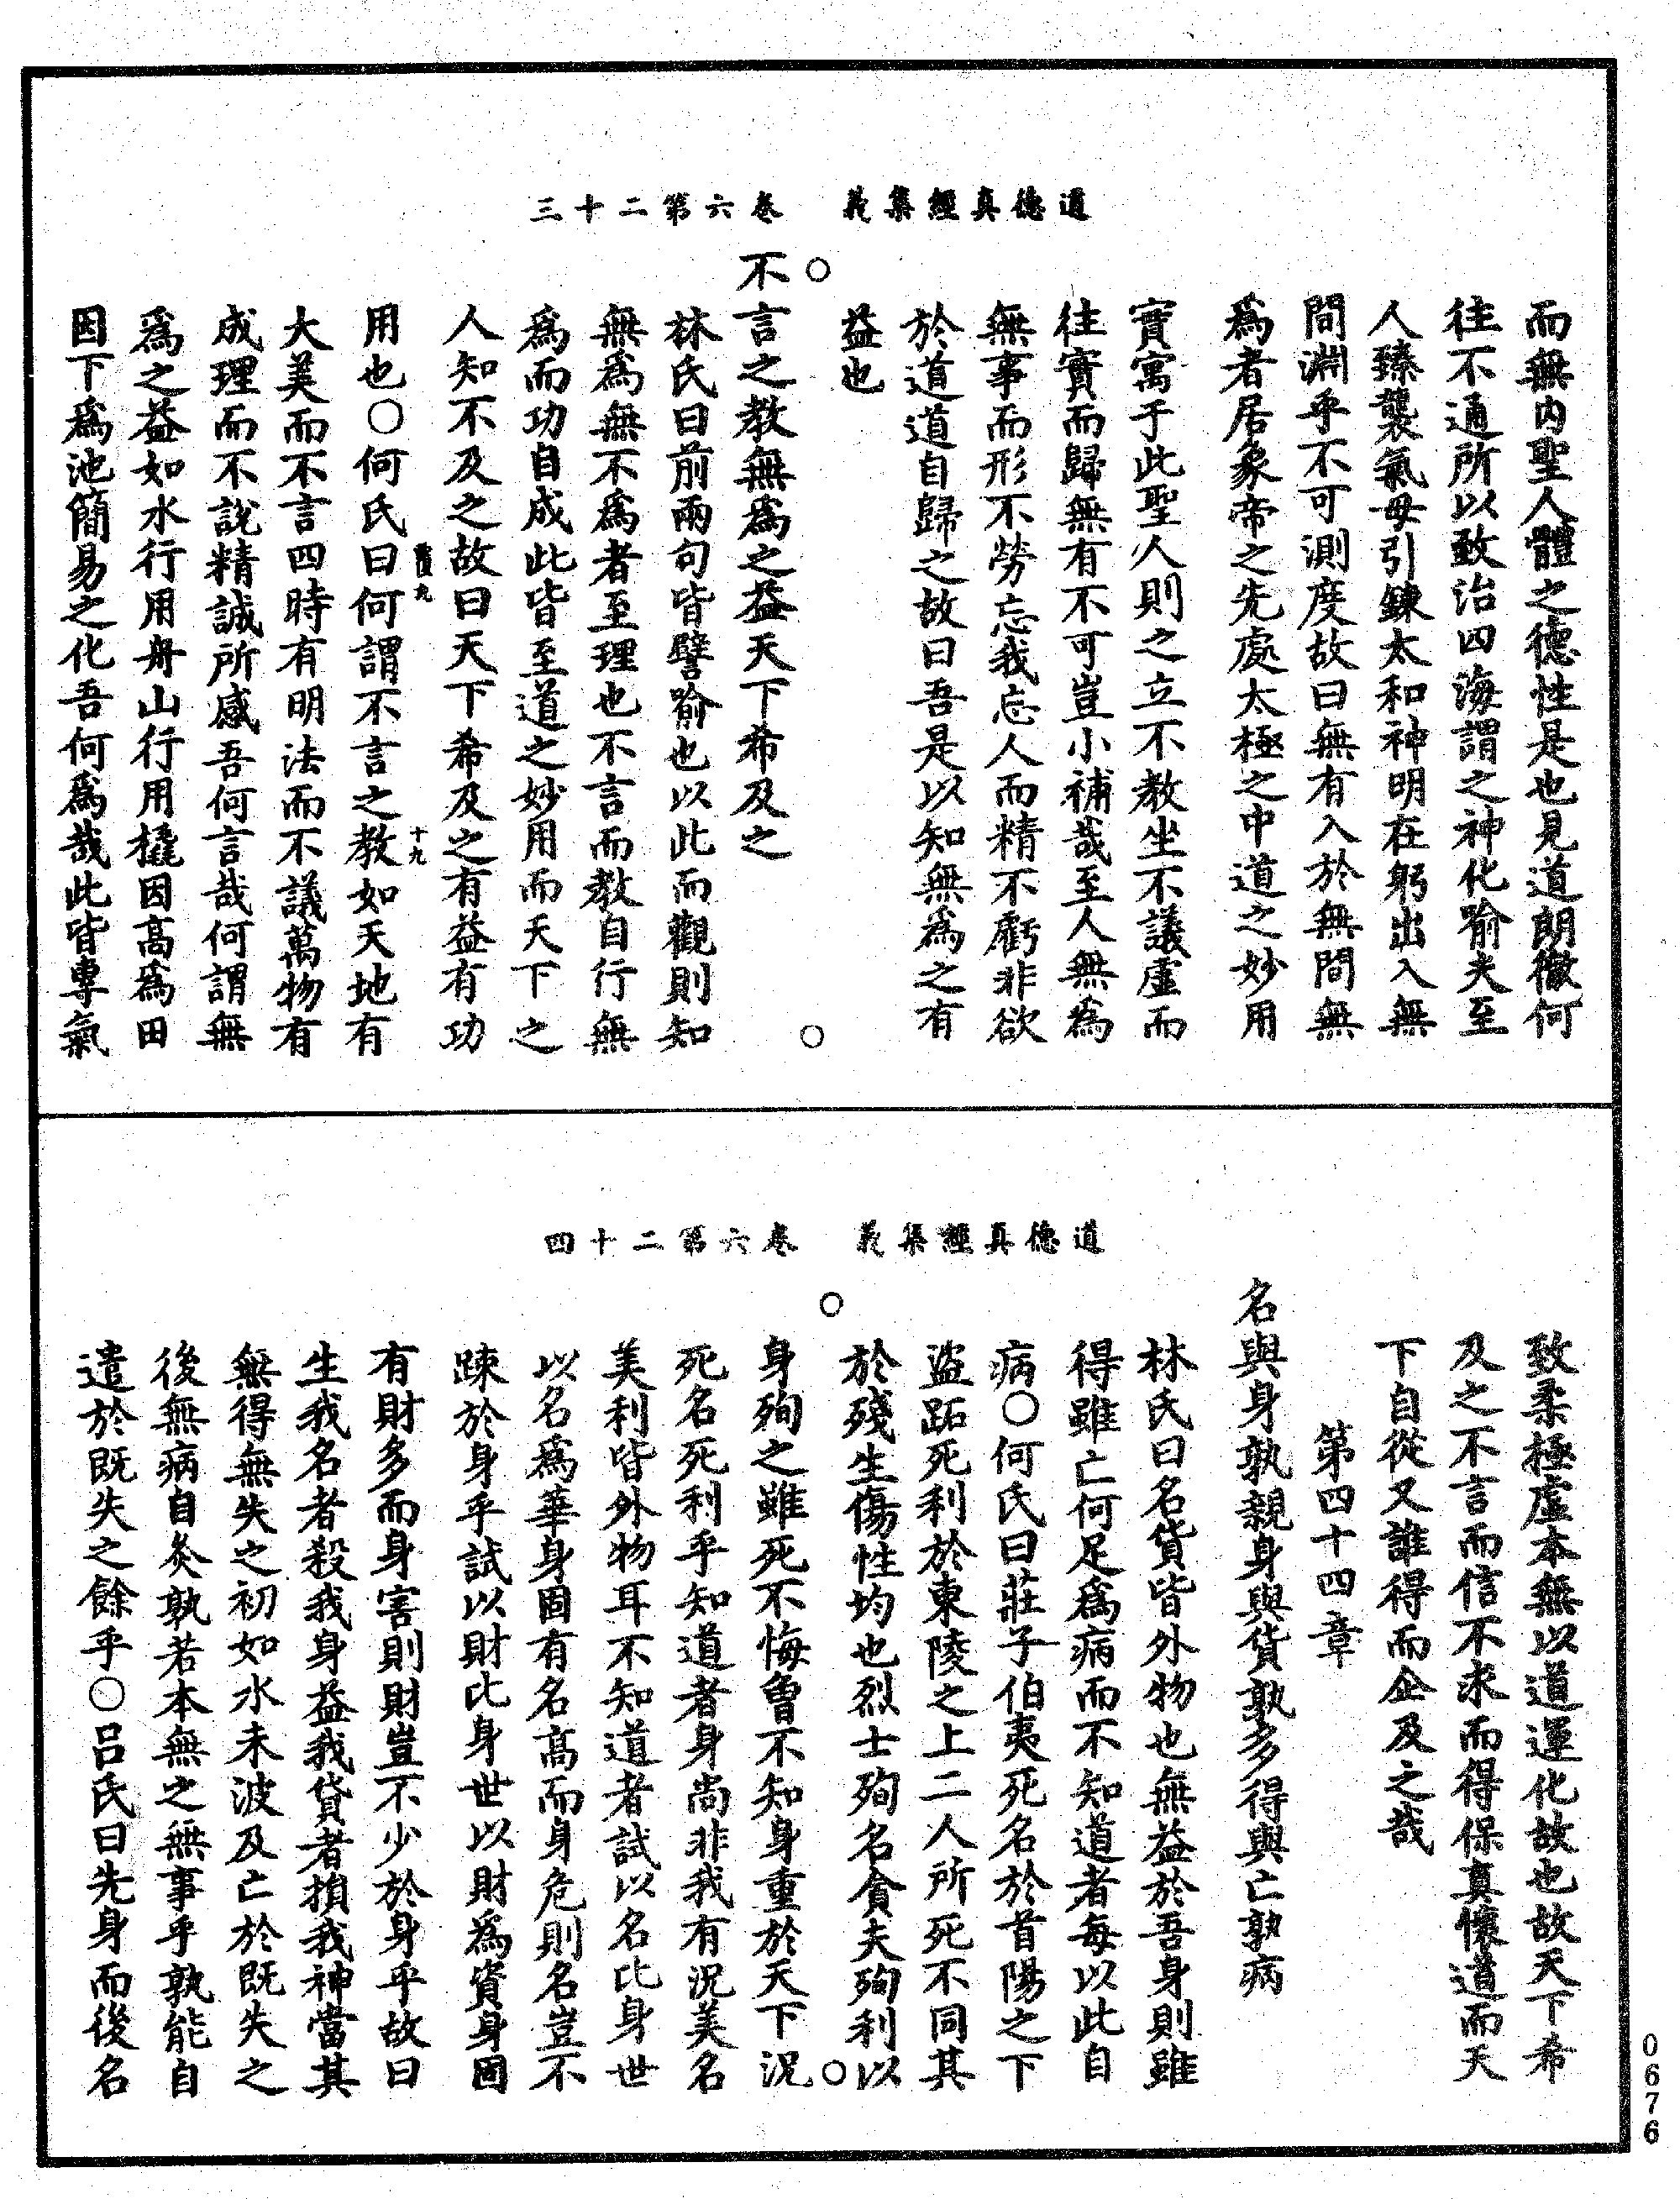 道德真經集義　卷六第二十三
而無內聖人體之德性是也見道朗徹何
往不通所以致治四海謂之神化喻夫至
人臻襲氣母引鍊太和神明在躬出入無
間淵乎不可測度故曰無有入於無間無
爲者居象帝之先處太極之中道之妙用
實寓于此聖人則之立不教坐不議虛而
往實而歸無有不可豈小補哉至人無爲
無事而形不勞忘我忘人而精不虧非欲
於道道自歸之故曰吾是以知無爲之有
益也
不言之教無爲之益天下希及之
林氏曰前兩句皆譬喻也以此而觀則知
無爲無不爲者至理也不言而教自行無
爲而功自成此皆至道之妙用而天下之
人知不及之故曰天下希及之有益有功
用也○何氏曰何謂不言之教如天地有
十九
大美而不言四時有明法而不議萬物有
成理而不說精誠所感吾何言哉何謂無
爲之益如水行用舟山行用橇因高爲田
因下爲池簡易之化吾何爲哉此皆專氣
道德真經集義　卷六第二十四
致柔極虛本無以道運化故也故天下希
及之不言而信不求而得保真懷道而天
下自從又誰得而企及之哉
第四十四章
名與身孰親身與貨孰多得與亡孰病
林氏曰名貨皆外物也無益於吾身則雖
得雖亡何足爲病而不知道者每以此自
病○何氏曰莊子伯夷死名於首陽之下
盜跖死利於東陵之上二人所死不同其
於殘生傷性均也烈士殉名貪夫殉利以
身殉之雖死不悔曾不知身重於天下況
死名死利乎知道者身尚非我有況美名
美利皆外物耳不知道者試以名比身世
以名爲華身固有名高而身危則名豈不
踈於身乎試以財比身世以財爲資身固
有財多而身害則財豈不少於身乎故曰
生我名者殺我身益我貨者損我神當其
無得無失之初如水未波及亡於既失之
後無病自灸孰若本無之無事乎孰能自
遣於既失之餘乎○呂氏曰先身而後名
0676